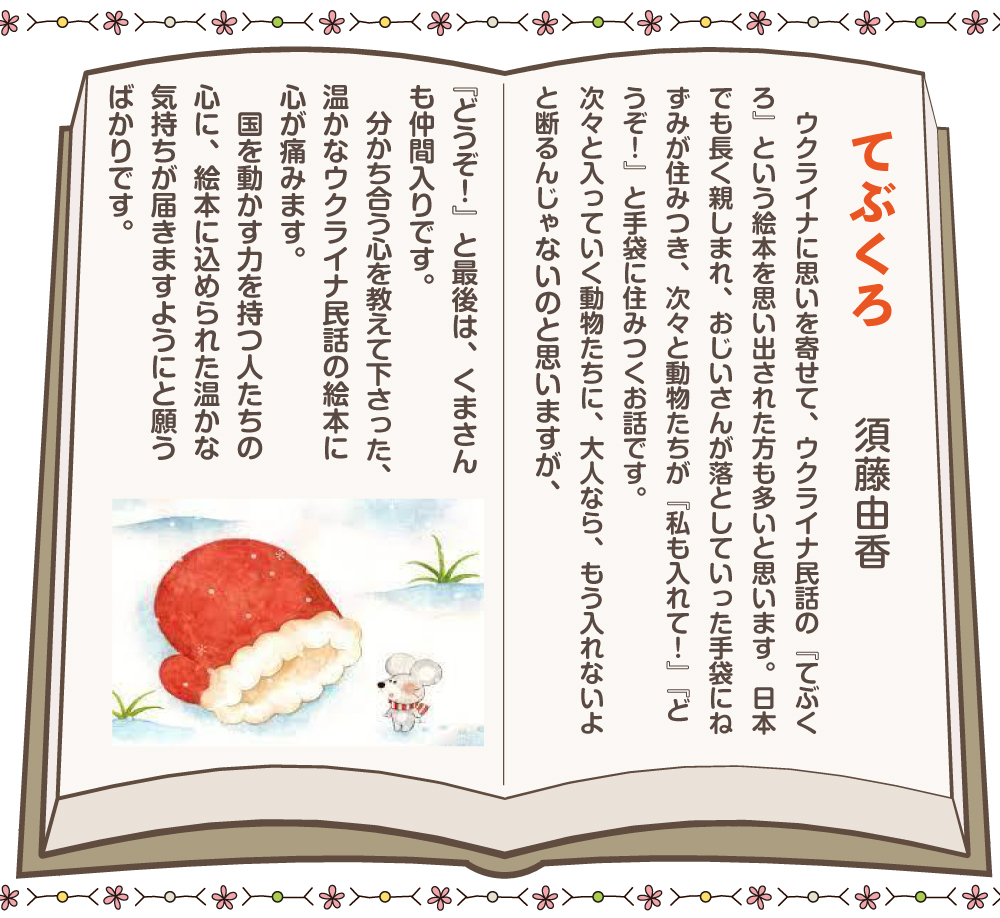 てぶくろ
須藤由香
ウクライナに思いを寄せて、ウクライナ民話の『てぶく
ろ』という絵本を思い出された方も多いと思います。日本
でも長く親しまれ、おじいさんが落としていった手袋にね
ずみが住みつき、次々と動物たちが『私も入れて！』『ど
うぞ！』と手袋に住みつくお話です。
次々と入っていく動物たちに、大人なら、もう入れないよ
と断るんじゃないのと思いますが、
『どうぞ！』と最後は、くまさん
も仲間入りです。
分かち合う心を教えて下さった、
温かなウクライナ民話の絵本に
心が痛みます。
国を動かす力を持つ人たちの
心に、絵本に込められた温かな
気持ちが届きますようにと願う
ばかりです。